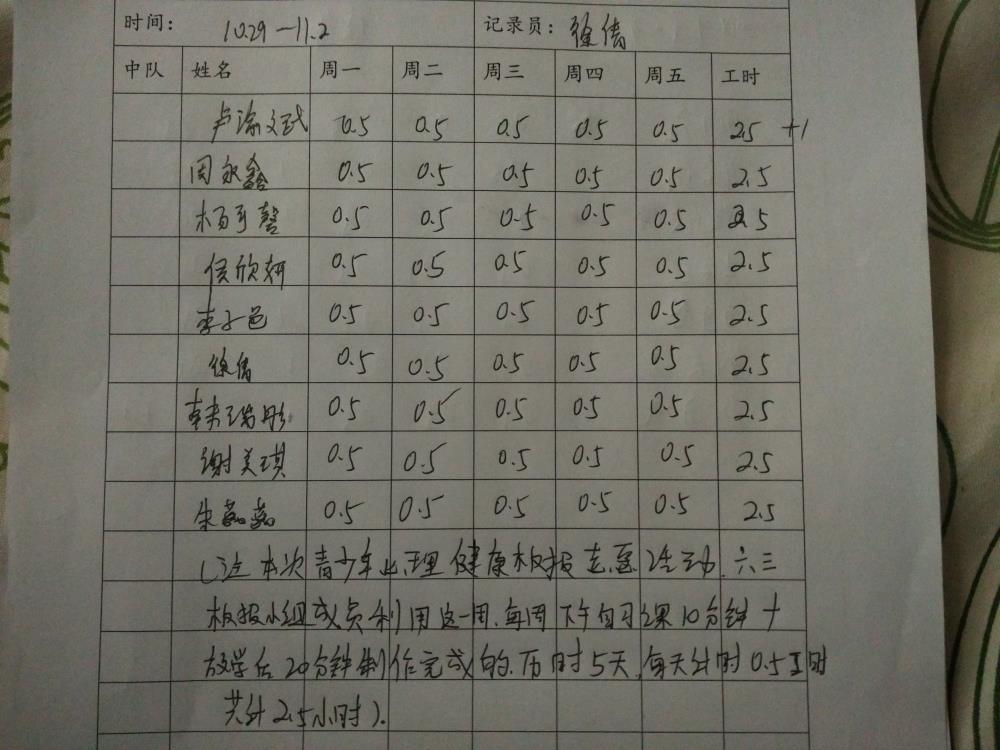 时间: 10.29—11.2 记录员: 徐倩
中队 姓名 周一 周二 周三 周四 周五 工时
卢 文 0.5 0.5 0.5 0.5 0.5 2.5 +1
周永鑫 0.5 0.5 0.5 0.5 0.5 2.5
杨 馨 0.5 0.5 0.5 0.5 0.5 2.5
侯欣妍 0.5 0.5 0.5 0.5 0.5 2.5
李子邑 0.5 0.5 0.5 0.5 0.5 2.5
徐倩 0.5 0.5 0.5 0.5 0.5 2.5
韩瑞彤 0.5 0.5 0.5 0.5 0.5 2.5
谢美琪 0.5 0.5 0.5 0.5 0.5 2.5
朱 0.5 0.5 0.5 0.5 0.5 2.5
(注 本次青少年心理健康板报志愿活动.六三
板报小组成员利用这一周.每周下午自习课10分钟+
放学后20分钟制作完成的.历时5天,每天计时0.5工时
共计2.5小时).